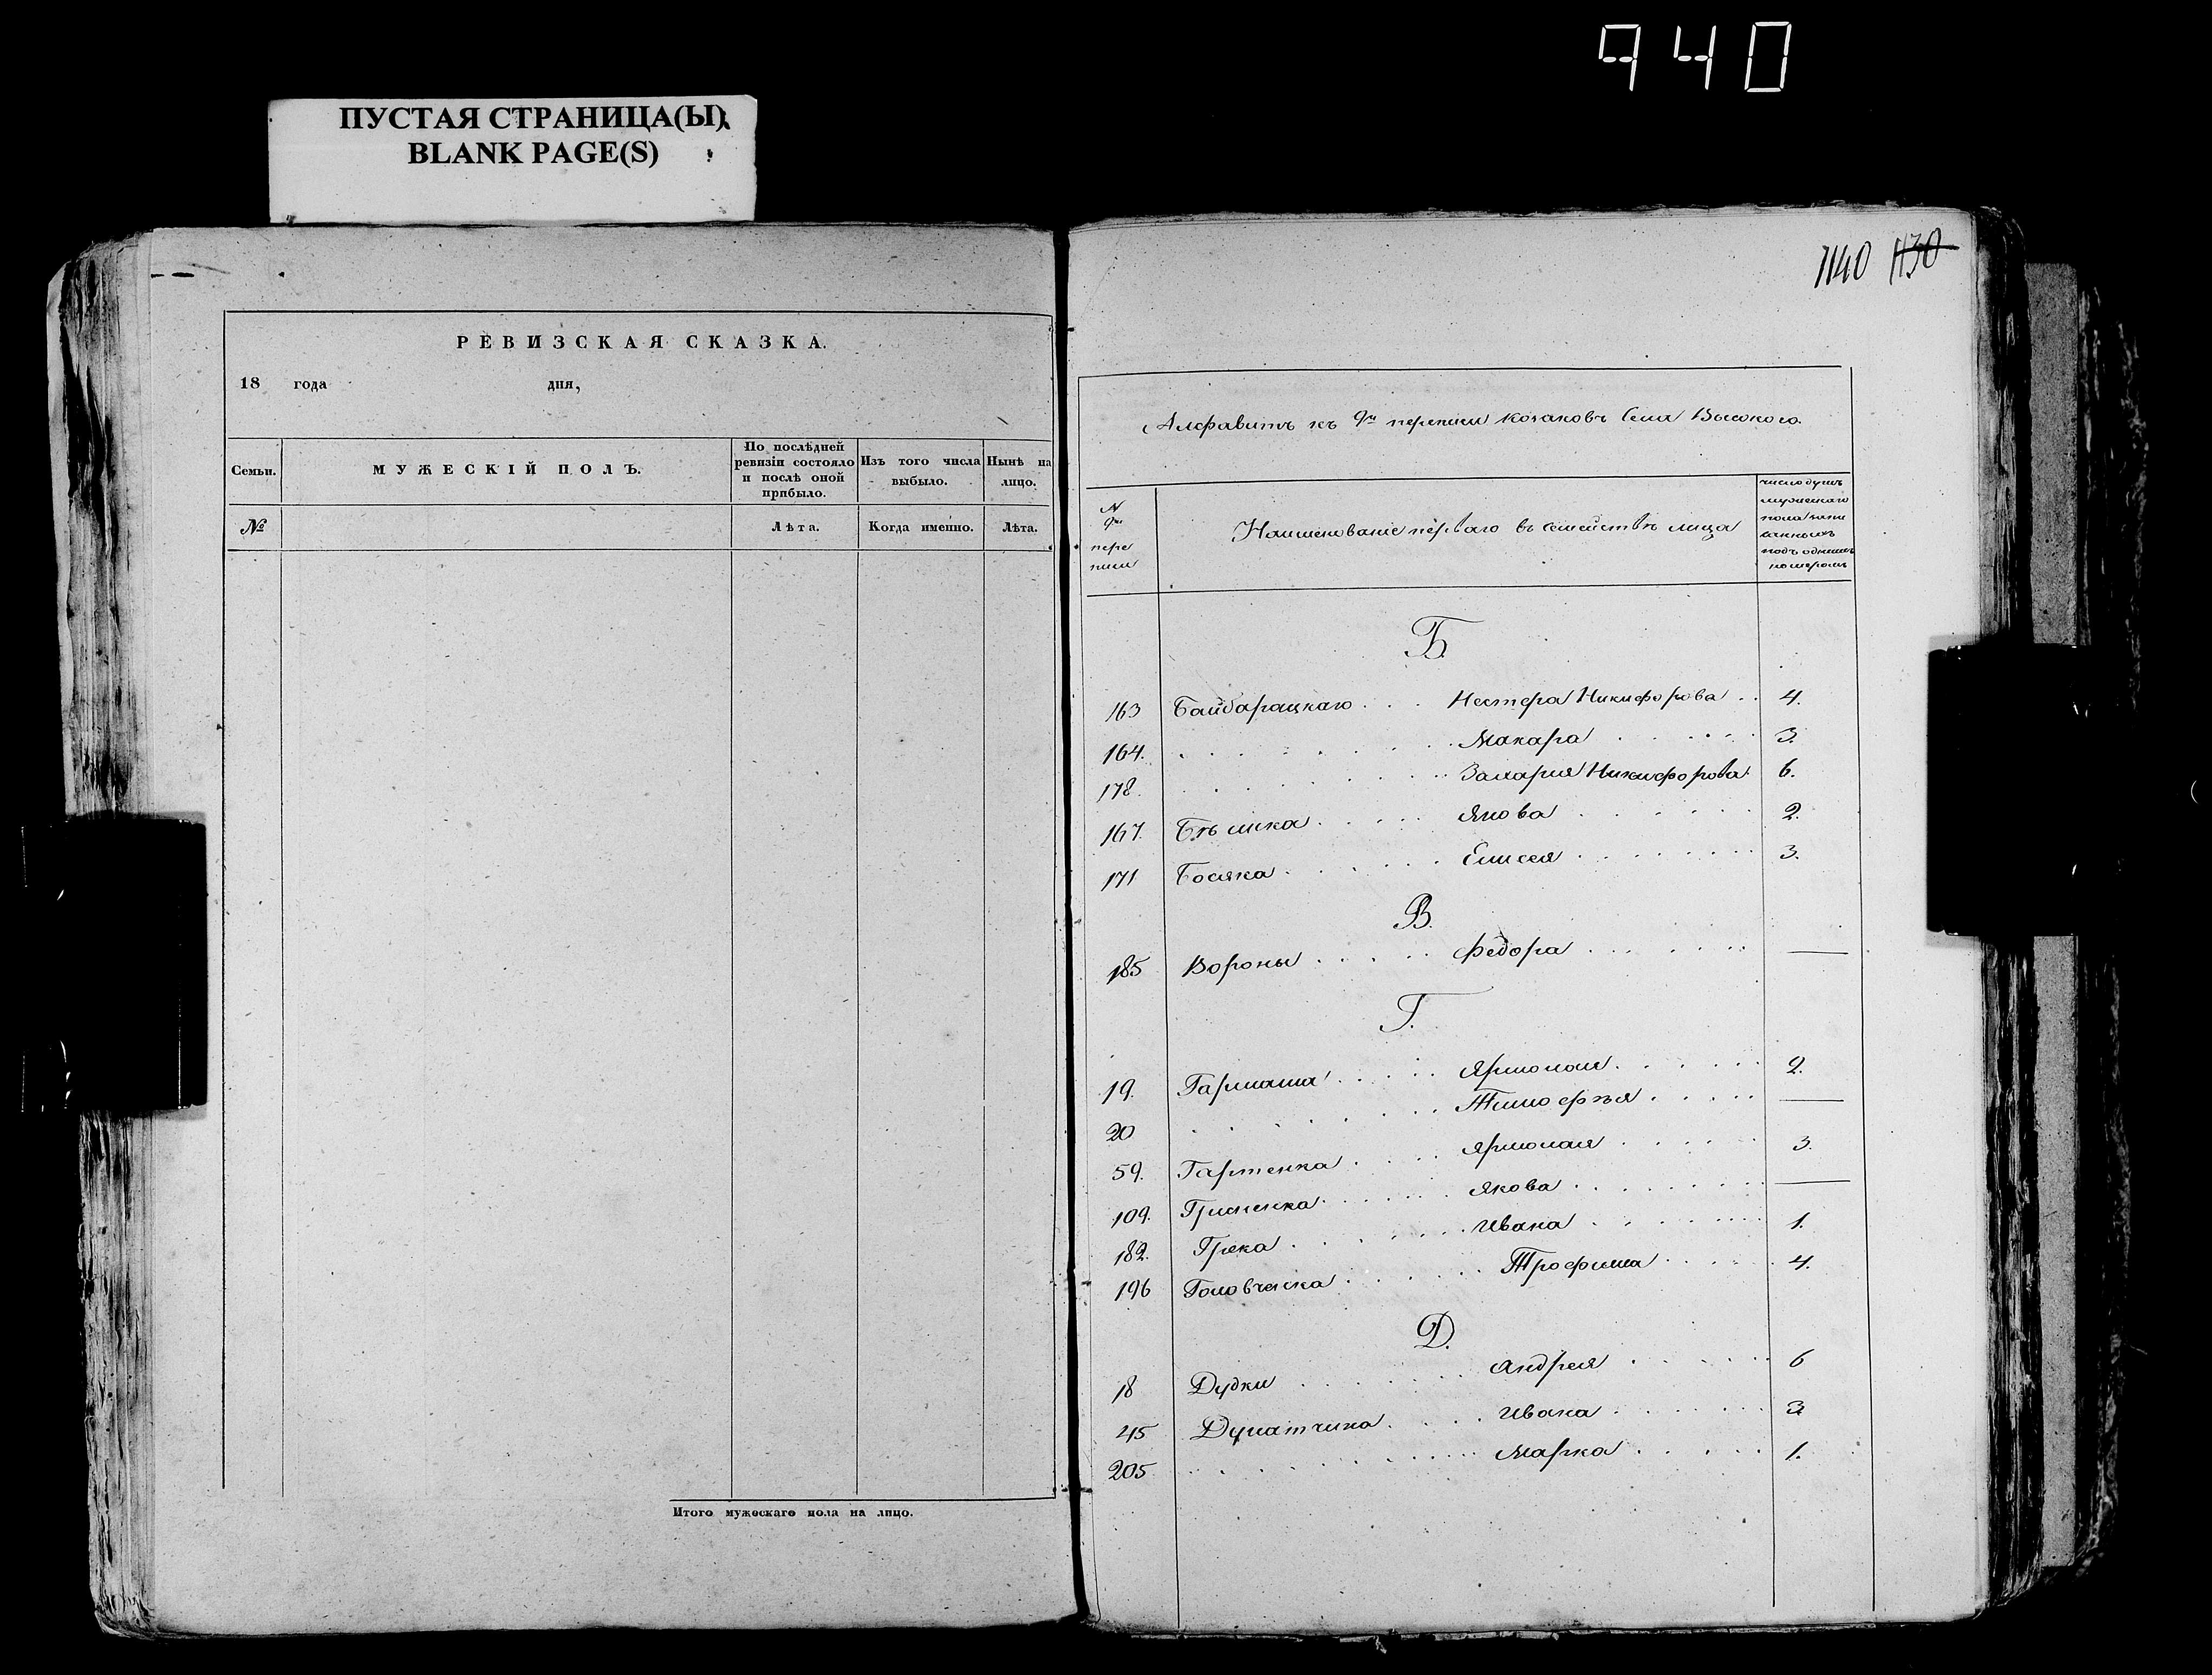 940
ПУСТАЯ СТРАНИЦА(Ы)
BLANK PAGE(S)
РЕВИЗСКАЯ СКАЗКА.
18 года дня,
Семьи.
МУЖЕСКІЙ ПОЛЪ.
По послѣдней
ревизіи состояло
и послѣ оной
прибыло.
Изъ того числа
выбыло.
Нынѣ на
лицо.
№
Лѣта.
Когда именно.
Лѣта.
Итого мужескаго пола на лицо.
1140 1130
Алфавитъ къ 9й переписи козаковъ Села Высокого.
№
9й
пере
писи
Наименованіе перваго въ семействѣ лица
число душъ
мужескаго
пола запи
санныхъ
подъ однимъ
номеромъ
Б.
163 Байбарацкаго . . . Нестера Никифорова . . 4.
164. Макара 3.
178. Захария Никифорова 6.
167. Якова 2.
171 Босяка Елисея 3.
В.
185 Вороны Федора —
Г.
19. Гармаша Ярмолая 2.
20 Тимофѣя —
59. Гартенка Ярмолая 3.
109. Гриненка Якова —
182. Грека Ивана 1.
196 Головченка Трофима 4.
Д.
18 Дудки Андрея 6
45 Ивана 3
205 Марка 1.